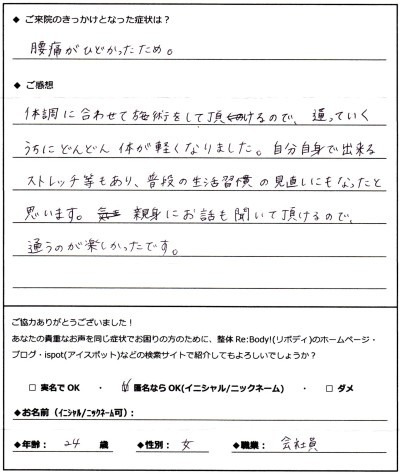 ◆ ご来院のきっかけとなった症状は？
腰痛がひどかったため。
◆ ご感想
体調に合わせて施術をして頂けるので、通っていく
うちにどんどん体が軽くなりました。自分自身で出来る
ストレッチ等もあり、普段の生活習慣の見直しにもなったと
思います。親身にお話も聞いて頂けるので、
通うのが楽しかったです。
ご協力ありがとうございました！
あなたの貴重なお声を同じ症状でお困りの方のために、整体 Re:Body!(リボディ)のホームページ・
ブログ・ispot(アイスポット)などの検索サイトで紹介してもよろしいでしょうか？
□ 実名でOK ・ ☑ 匿名ならOK(イニシャル/ニックネーム) ・ □ ダメ
◆お名前(イニシャル/ニックネーム可)：
◆年齢： 24 歳 ◆性別： 女 ◆職業： 会社員